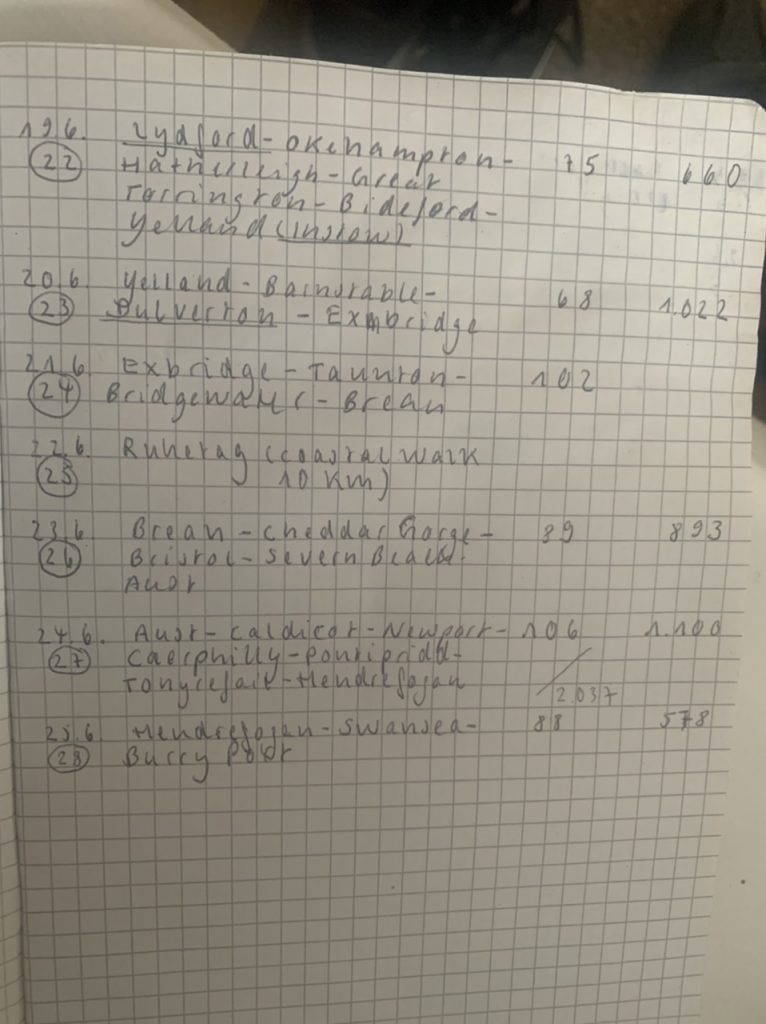 19.6. Lydford - Okehampton -   75   660
(22) Hatherleigh - Great
Torrington - Bideford -
Yelland (Instow)
20.6. Yelland - Barnstable -   68   1.022
(23) Dulverton - Exmbridge
21.6. Exbridge - Taunton -   102
(24) Bridgewater - Brean
22.6. Ruhetag (coastal walk
(25) 10 km)
23.6. Brean - Cheddar Gorge -   89   893
(26) Bristol - Severn Beach
Aust
24.6. Aust - Caldicot - Newport - 106   1.100
(27) Caerphilly - Pontipridd -
Tonyrefail - Hendreforgan
2.037
25.6 Hendreforgan - Swansea -   88   578
(28) Burry Port